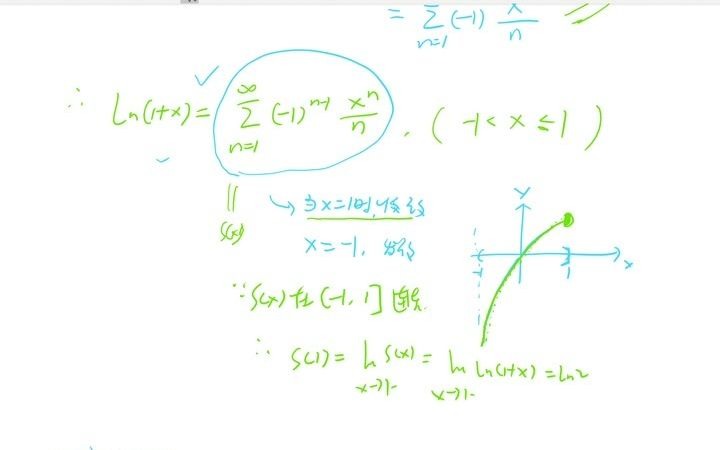 = ∑_{n=1} (-1) x/n
∴ ln(1+x) = ∑_{n=1}^{∞} (-1)^{n-1} x^n/n , ( -1 < x ≤ 1 )
|| S(x)
→ 当x=1时,收敛
x=-1, 发散
y
-1 1 x
∵ S(x)在(-1, 1]连续
∴ S(1) = lim_{x→1-} S(x) = lim_{x→1-} ln(1+x) = ln2